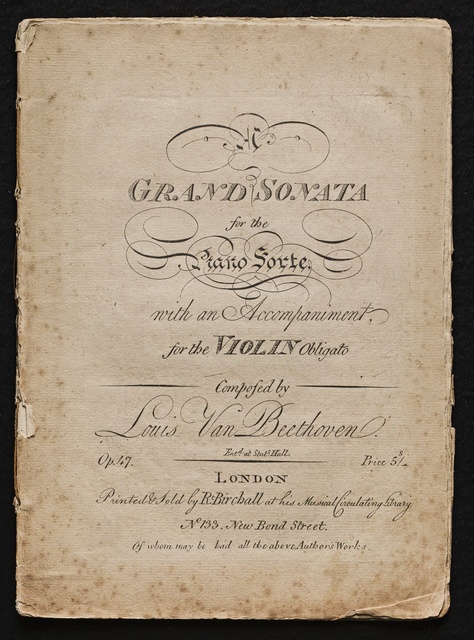 A
GRAND SONATA
for the
Piano Forte,
with an Accompaniment,
for the VIOLIN Obligato
Composed by
Louis Van Beethoven.
Ent.d at Stat.s Hall.
Op. 47. Price 5s/-
LONDON
Printed & Sold by R.t Birchall at his Musical Circulating Library
No. 133. New Bond Street.
Of whom may be had all the above Author's Works.